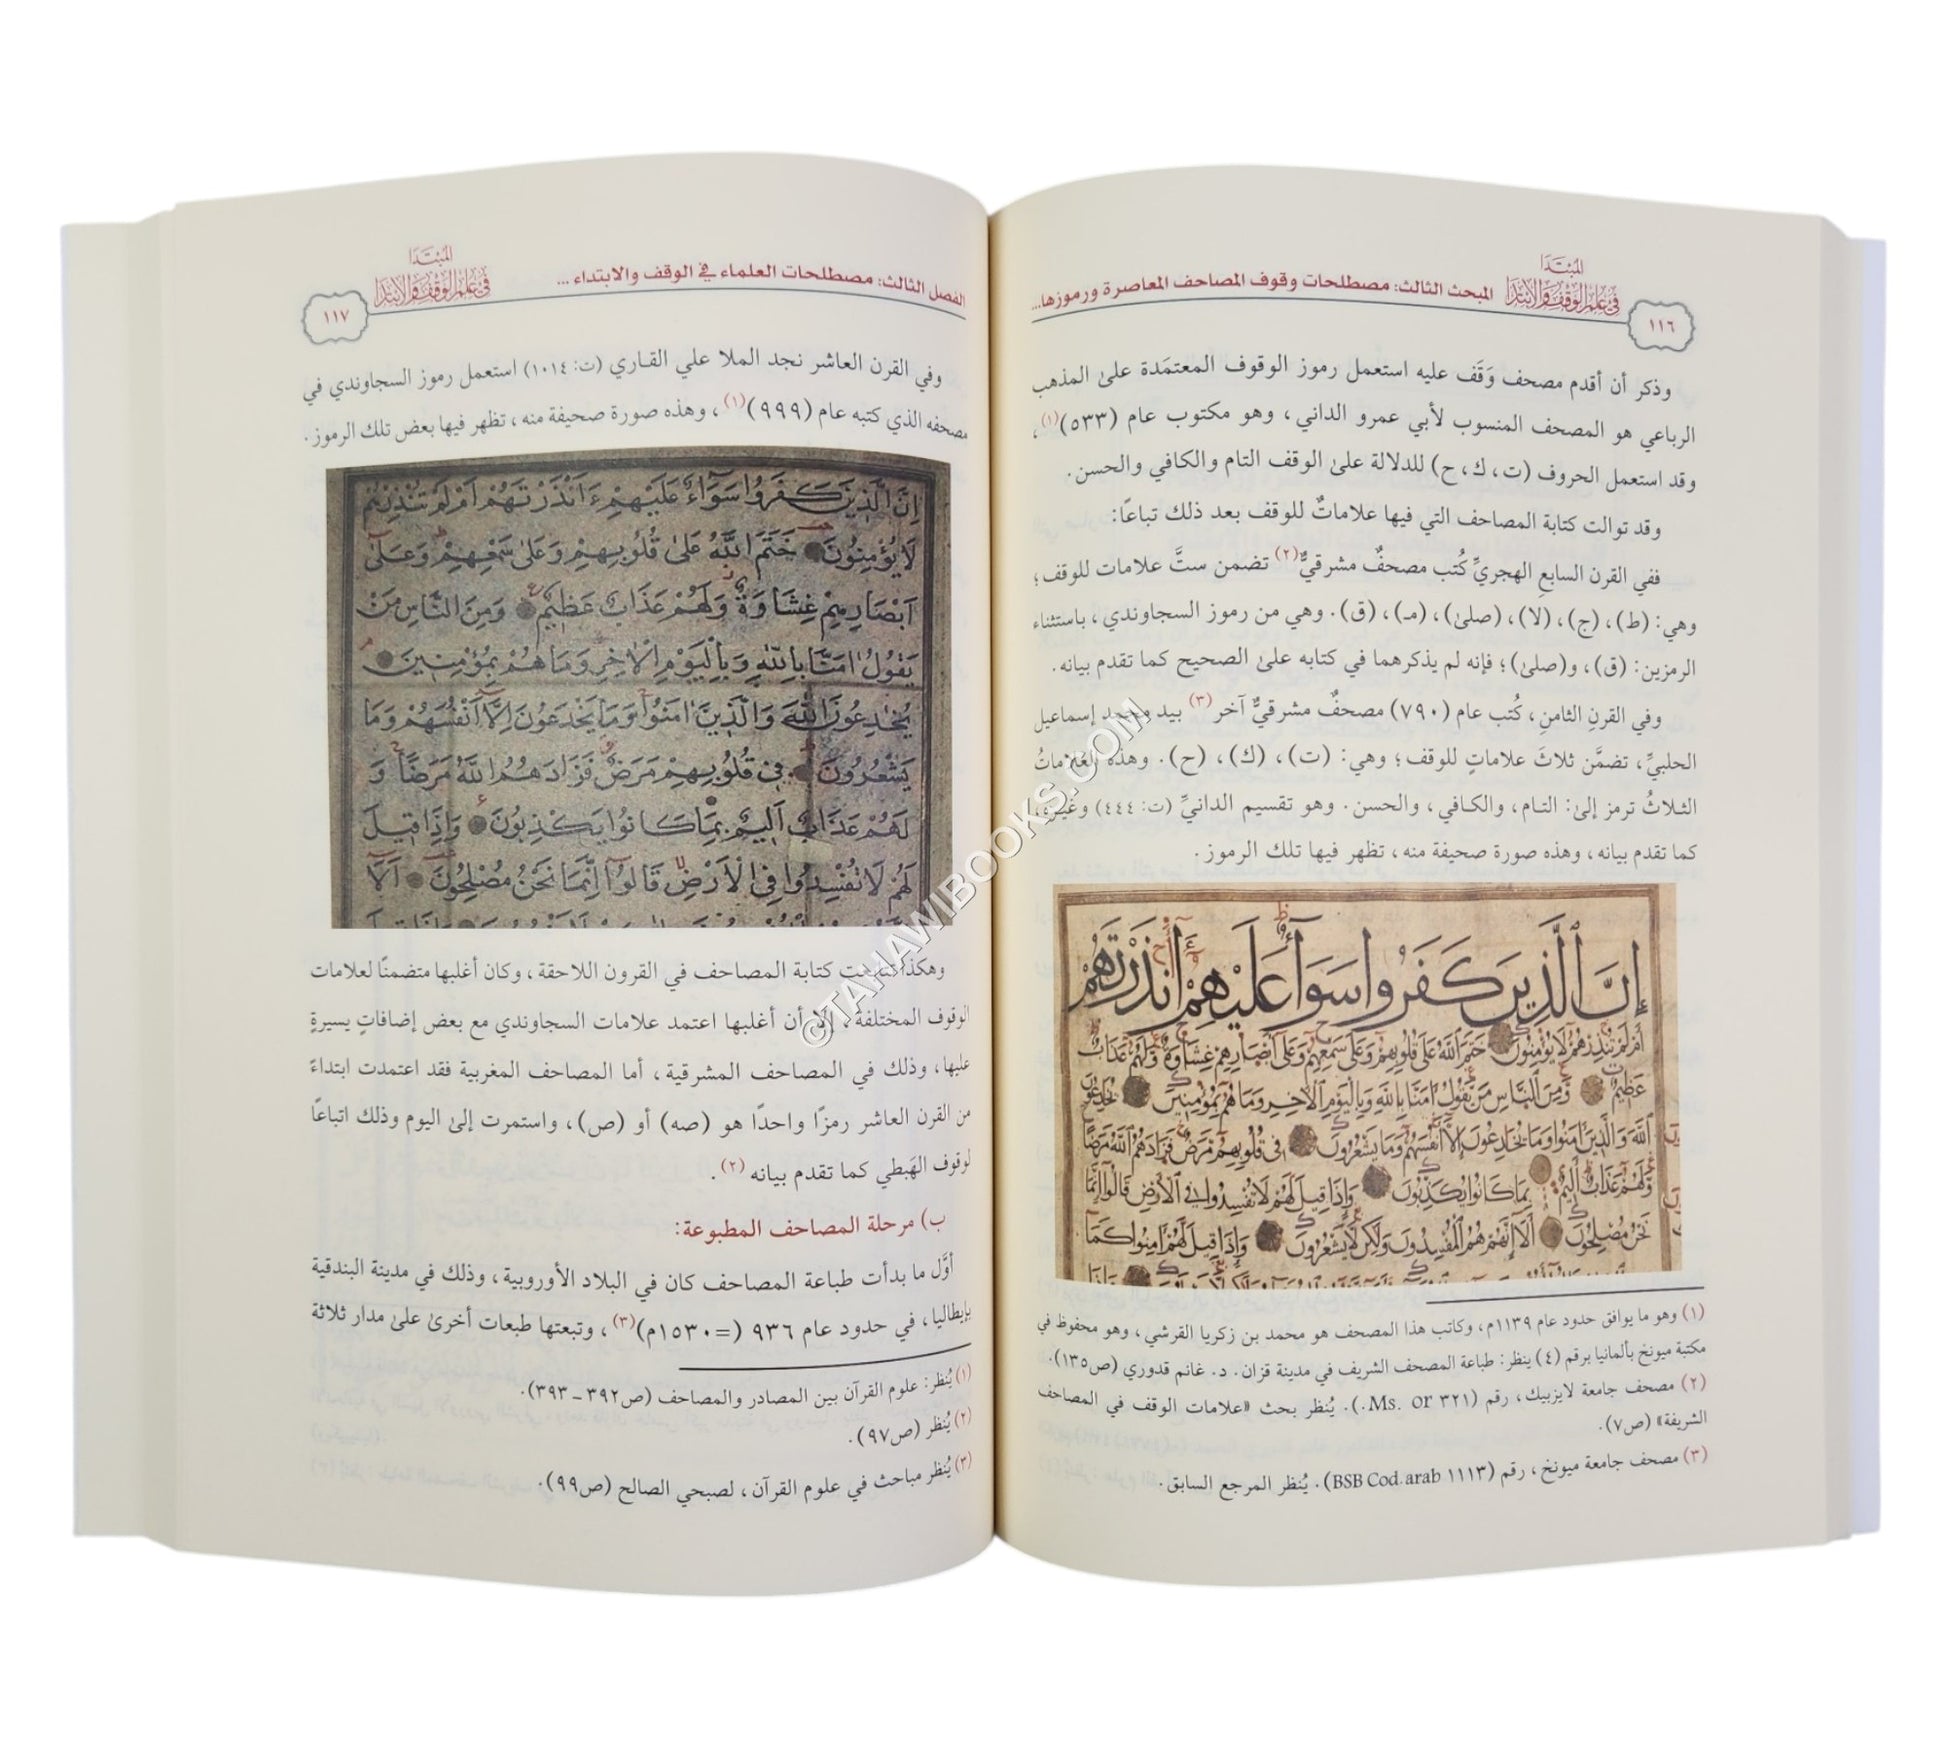 المبتدا
في علم الوقف والابتدا
المبحث الثالث: مصطلحات وقوف المصاحف المعاصرة ورموزها...
١١٦
وذكر أن أقدم مصحف وَقَف عليه استعمل رموز الوقوف المعتمَدة علىٰ المذهب
الرباعي هو المصحف المنسوب لأبي عمرو الداني، وهو مكتوب عام (٥٣٣)(١)،
وقد استعمل الحروف (ت، ك، ح) للدلالة علىٰ الوقف التام والكافي والحسن.
وقد توالت كتابة المصاحف التي فيها علاماتٌ للوقف بعد ذلك تباعًا:
ففي القرن السابعِ الهجريِّ كُتب مصحفٌ مشرقيٌّ(٢) تضمن ستَّ علامات للوقف؛
وهي: (ط)، (ج)، (لا)، (صلىٰ)، (مـ)، (ق). وهي من رموز السجاوندي، باستثناء
الرمزين: (ق)، و(صلىٰ)؛ فإنه لم يذكرهما في كتابه علىٰ الصحيح كما تقدم بيانه.
وفي القرنِ الثامنِ، كُتب عام (٧٩٠) مصحفٌ مشرقيٌّ آخر(٣) بيد محمد إسماعيل
الحلبيِّ، تضمَّن ثلاثَ علاماتٍ للوقف؛ وهي: (ت)، (ك)، (ح). وهذه العلاماتُ
الثلاثُ ترمز إلىٰ: التام، والكافي، والحسن. وهو تقسيم الدانيِّ (ت: ٤٤٤) وغيرِه،
كما تقدم بيانه، وهذه صورة صحيفة منه، تظهر فيها تلك الرموز.
إن الذين كفروا سواء عليهم أنذرتهم
أم لم تنذرهم لا يؤمنون ختم الله على قلوبهم وعلى سمعهم وعلى أبصارهم غشاوة ولهم عذاب
عظيم ومن الناس من يقول آمنا بالله وباليوم الآخر وما هم بمؤمنين يخادعون
الله والذين آمنوا وما يخادعون إلا أنفسهم وما يشعرون في قلوبهم مرض فزادهم الله مرضا
ولهم عذاب أليم بما كانوا يكذبون وإذا قيل لهم لا تفسدوا في الأرض قالوا إنما
نحن مصلحون ألا إنهم هم المفسدون ولكن لا يشعرون وإذا قيل لهم آمنوا كما
(١) وهو ما يوافق حدود عام ١١٣٩م، وكاتب هذا المصحف هو محمد بن زكريا القرشي، وهو محفوظ في
مكتبة ميونخ بألمانيا برقم (٤) ينظر: طباعة المصحف الشريف في مدينة قزان. د. غانم قدوري (ص١٣٥).
(٢) مصحف جامعة لايزبيك، رقم (Ms. or ٣٢١.). يُنظر بحث «علامات الوقف في المصاحف
الشريفة» (ص٧).
(٣) مصحف جامعة ميونخ، رقم (BSB Cod. arab ١١١٣). يُنظر المرجع السابق.
الفصل الثالث: مصطلحات العلماء في الوقف والابتداء ...
المبتدا
في علم الوقف والابتدا
١١٧
وفي القرن العاشر نجد الملا علي القاري (ت: ١٠١٤) استعمل رموز السجاوندي في
مصحفه الذي كتبه عام (٩٩٩)(١)، وهذه صورة صحيفة منه، تظهر فيها بعض تلك الرموز.
إن الذين كفروا سواء عليهم ءأنذرتهم أم لم تنذرهم
لا يؤمنون ختم الله على قلوبهم وعلى سمعهم وعلى
أبصارهم غشاوة ولهم عذاب عظيم ومن الناس من
يقول آمنا بالله وباليوم الآخر وما هم بمؤمنين
يخدعون الله والذين آمنوا وما يخدعون إلا أنفسهم وما
يشعرون في قلوبهم مرض فزادهم الله مرضا و
لهم عذاب أليم بما كانوا يكذبون وإذا قيل
لهم لا تفسدوا في الأرض قالوا إنما نحن مصلحون ألا
وهكذا تتابعت كتابة المصاحف في القرون اللاحقة، وكان أغلبها متضمنًا لعلامات
الوقوف المختلفة، إلا أن أغلبها اعتمد علامات السجاوندي مع بعض إضافاتٍ يسيرةٍ
عليها، وذلك في المصاحف المشرقية، أما المصاحف المغربية فقد اعتمدت ابتداءً
من القرن العاشر رمزًا واحدًا هو (صه) أو (ص)، واستمرت إلىٰ اليوم وذلك اتباعًا
لوقوف الهَبطي كما تقدم بيانه(٢).
ب) مرحلة المصاحف المطبوعة:
أوَّل ما بدأت طباعة المصاحف كان في البلاد الأوروبية، وذلك في مدينة البندقية
بإيطاليا، في حدود عام ٩٣٦ (=١٥٣٠م)(٣)، وتبعتها طبعات أخرىٰ علىٰ مدار ثلاثة
(١) يُنظر: علوم القرآن بين المصادر والمصاحف (ص٣٩٢ـ٣٩٣).
(٢) يُنظر (ص٩٧).
(٣) يُنظر مباحث في علوم القرآن، لصبحي الصالح (ص٩٩).
©TAHAWIBOOKS.COM